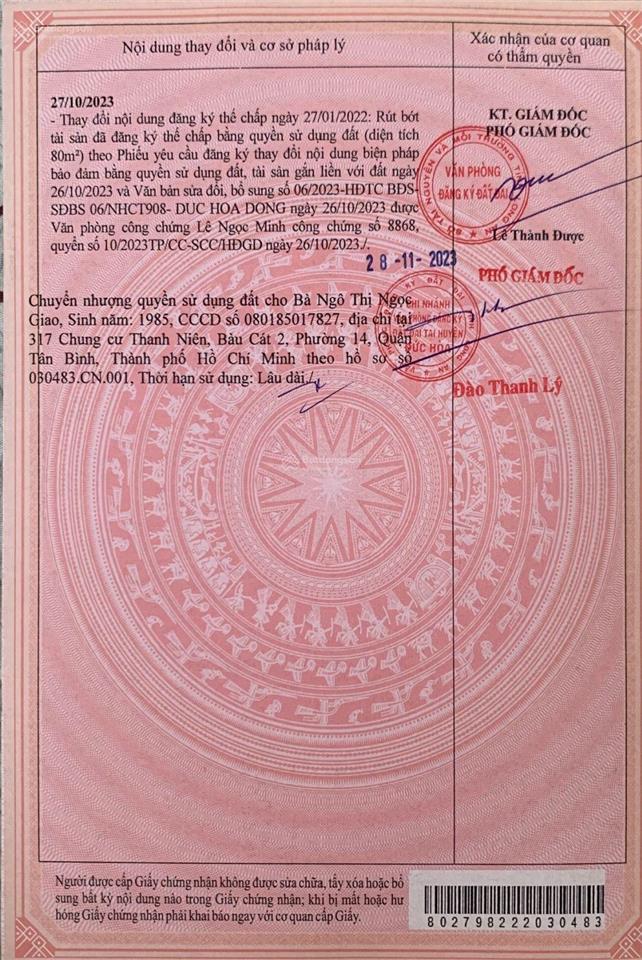 Nội dung thay đổi và cơ sở pháp lý
Xác nhận của cơ quan
có thẩm quyền
27/10/2023
- Thay đổi nội dung đăng ký thế chấp ngày 27/01/2022: Rút bớt
tài sản đã đăng ký thế chấp bằng quyền sử dụng đất (diện tích
80m²) theo Phiếu yêu cầu đăng ký thay đổi nội dung biện pháp
bảo đảm bằng quyền sử dụng đất, tài sản gắn liền với đất ngày
26/10/2023 và Văn bản sửa đổi, bổ sung số 06/2023-HĐTC BĐS-
SĐBS 06/NHCT908- DUC HOA DONG ngày 26/10/2023 được
Văn phòng công chứng Lê Ngọc Minh công chứng số 8868,
quyển số 10/2023TP/CC-SCC/HĐGD ngày 26/10/2023./.
KT. GIÁM ĐỐC
PHÓ GIÁM ĐỐC
VĂN PHÒNG
ĐĂNG KÝ ĐẤT ĐAI
Lê Thành Được
28-11-2023
Chuyển nhượng quyền sử dụng đất cho Bà Ngô Thị Ngọc
Giao, Sinh năm: 1985, CCCD số 080185017827, địa chỉ tại
317 Chung cư Thanh Niên, Bàu Cát 2, Phường 14, Quận
Tân Bình, Thành phố Hồ Chí Minh theo hồ sơ số
030483.CN.001, Thời hạn sử dụng: Lâu dài./.
PHÓ GIÁM ĐỐC
CHI NHÁNH
VĂN PHÒNG ĐĂNG KÝ
ĐẤT ĐAI TẠI HUYỆN
ĐỨC HÒA
Đào Thanh Lý
Người được cấp Giấy chứng nhận không được sửa chữa, tẩy xóa hoặc bổ
sung bất kỳ nội dung nào trong Giấy chứng nhận; khi bị mất hoặc hư
hỏng Giấy chứng nhận phải khai báo ngay với cơ quan cấp Giấy.
802798222030483